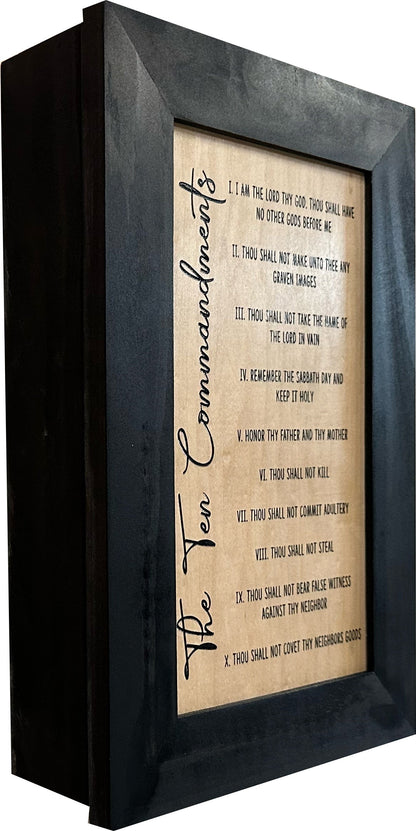 The Ten Commandments
I. I AM THE LORD THY GOD, THOU SHALL HAVE
NO OTHER GODS BEFORE ME
II. THOU SHALL NOT MAKE UNTO THEE ANY
GRAVEN IMAGES
III. THOU SHALL NOT TAKE THE NAME OF
THE LORD IN VAIN
IV. REMEMBER THE SABBATH DAY AND
KEEP IT HOLY
V. HONOR THY FATHER AND THY MOTHER
VI. THOU SHALL NOT KILL
VII. THOU SHALL NOT COMMIT ADULTERY
VIII. THOU SHALL NOT STEAL
IX. THOU SHALL NOT BEAR FALSE WITNESS
AGAINST THY NEIGHBOR
X. THOU SHALL NOT COVET THY NEIGHBORS GOODS